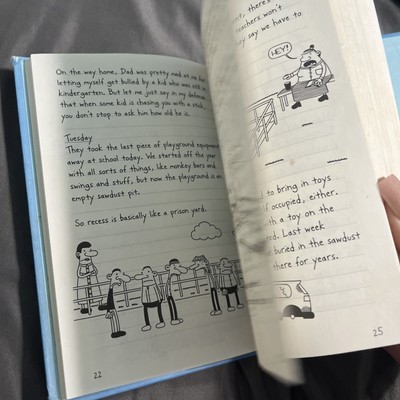 On the way home, Dad was pretty mad at me for
letting myself get bullied by a kid who was still in
kindergarten. But let me just say in my defense
that when some kid is chasing you with a stick,
you don't stop to ask him how old he is.
Tuesday
They took the last piece of playground equipment
away at school today. We started off the year
with all sorts of things, like monkey bars and
swings and stuff, but now the playground is an
empty sawdust pit.
So recess is basically like a prison yard.
22
there's
teachers won't
say we have to
HEY!
to bring in toys
occupied, either.
with a toy on the
Last week
buried in the sawdust
there for years.
25